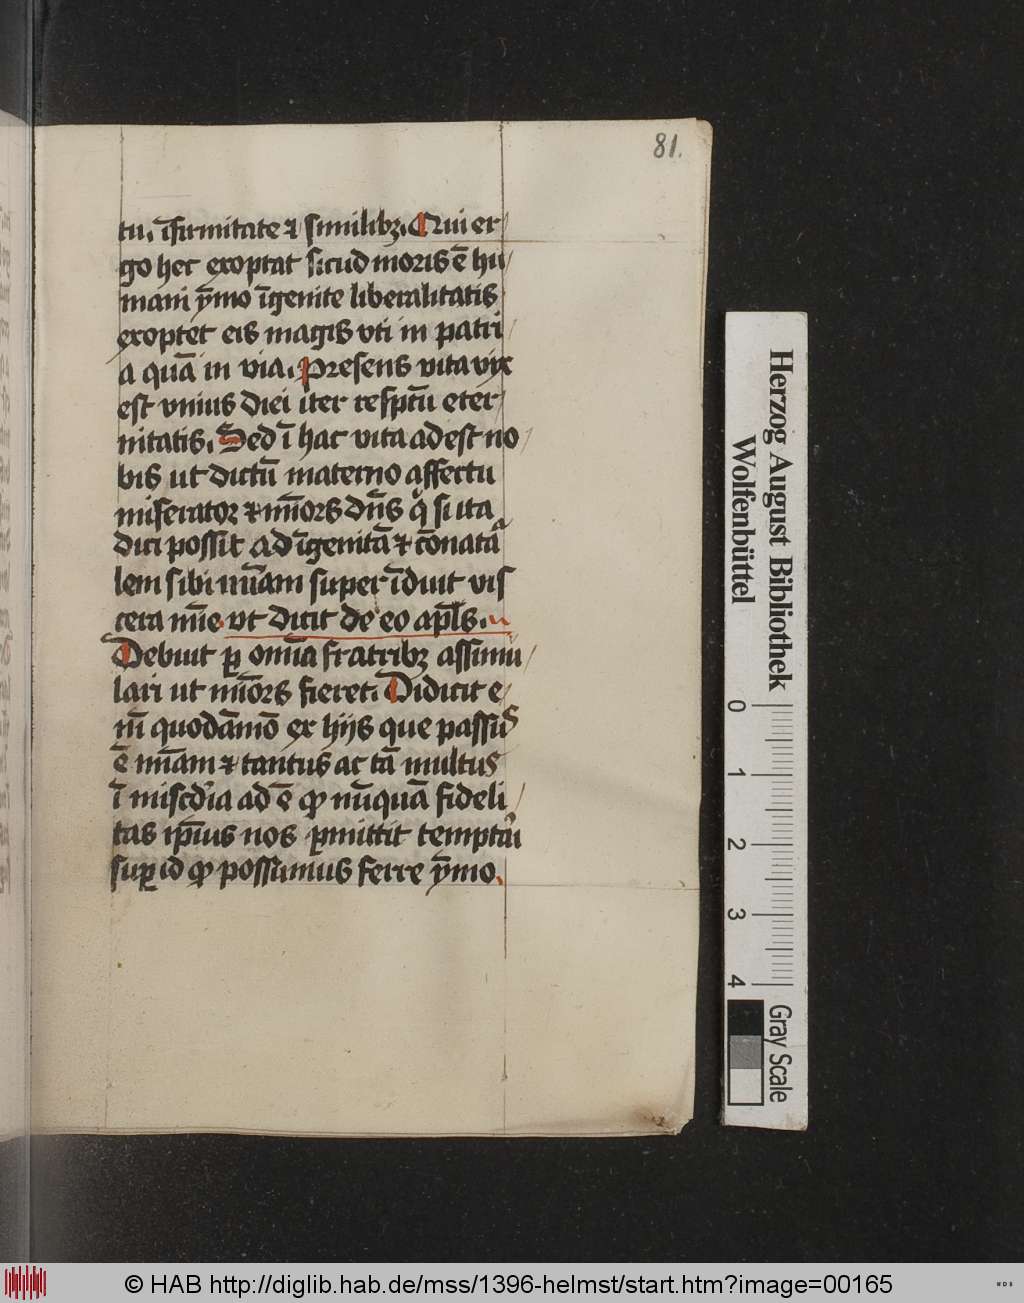 81.
tu. īfirmitate ⁊ similibꝫ. Qui er
go hec exoptat sicud moris ē hu
mani ymo īgenite liberalitatis
exoptet eis magis vti in patri
a quā in via. Presens vita vix
est vnius diei iter respectū eter
nitatis. Sed ī hac vita adest no
bis ut dictū materno affectu
miserator ⁊ dn̄s si ita
dici possit ad īgenitā ⁊ cōnatā
lem sibi mīam super īduit vis
cera mīe vt dicit de eo apl̄s.
Debuit ꝑ omīa fratribꝫ assimu
lari ut fieret. Didicit e
m̄ quodāmō ex hijs que passus
ē mīam ⁊ tantus ac tā multus
ī misc̄dia ad ē ꝙ nūquā fideli
tas ip̄ius nos ꝑmittit temptari
suꝑ id ꝙ possumus ferre ymo.
Herzog August Bibliothek
Wolfenbüttel
0 1 2 3 4
Gray Scale
© HAB http://diglib.hab.de/mss/1396-helmst/start.htm?image=00165